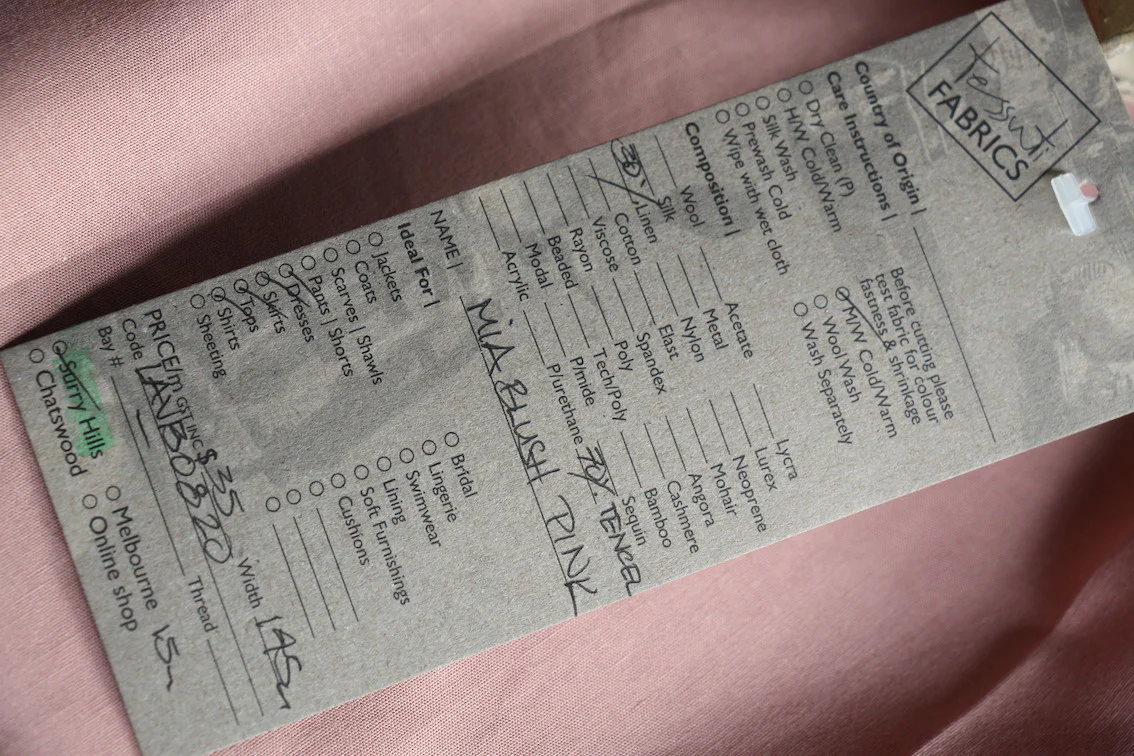 tessuti
FABRICS
Country of Origin |
Care Instructions |
Dry Clean (P)
H/W Cold/Warm
Silk Wash
Prewash Cold
Wipe with wet cloth
Before cutting please
test fabric for colour
fastness & shrinkage
M/W Cold/Warm
Wool Wash
Wash Separately
Composition |
Wool
Silk
30% Linen
Cotton
Viscose
Rayon
Beaded
Modal
Acrylic
Acetate
Metal
Nylon
Elast
Spandex
Poly
Tech/Poly
P/mide
P/urethane
Lycra
Lurex
Neoprene
Mohair
Angora
Cashmere
Bamboo
Sequin
70% TENCEL
NAME | MIA BLUSH PINK
Ideal For |
Jackets
Coats
Scarves | Shawls
Pants | Shorts
Dresses
Skirts
Tops
Shirts
Sheeting
Bridal
Lingerie
Swimwear
Lining
Soft Furnishings
Cushions
PRICE/m GST INC $35 Width 145
Code LAVB0820
Bay # Thread
Surry Hills
Chatswood
Melbourne 15m
Online shop